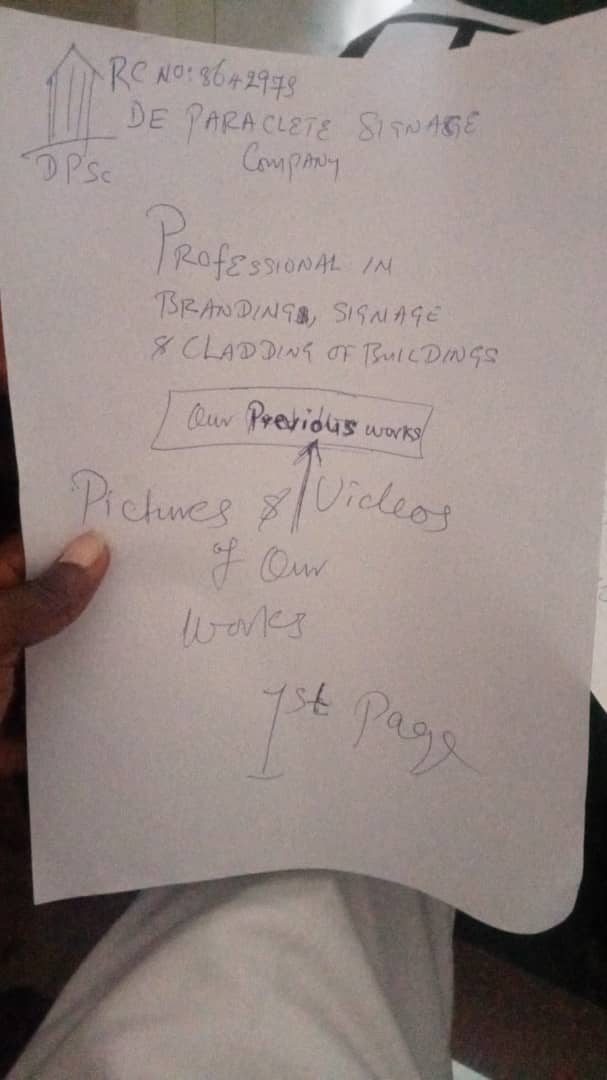 RC NO: 8642979
DE PARACLETE SIGNAGE
Company
DPSc
PROfESSIONAL IN
BRANDING, SIGNAGE
& CLADDING OF BUILDINGS
Our Previous works
Pictures & Videos
of Our
works
1st Page